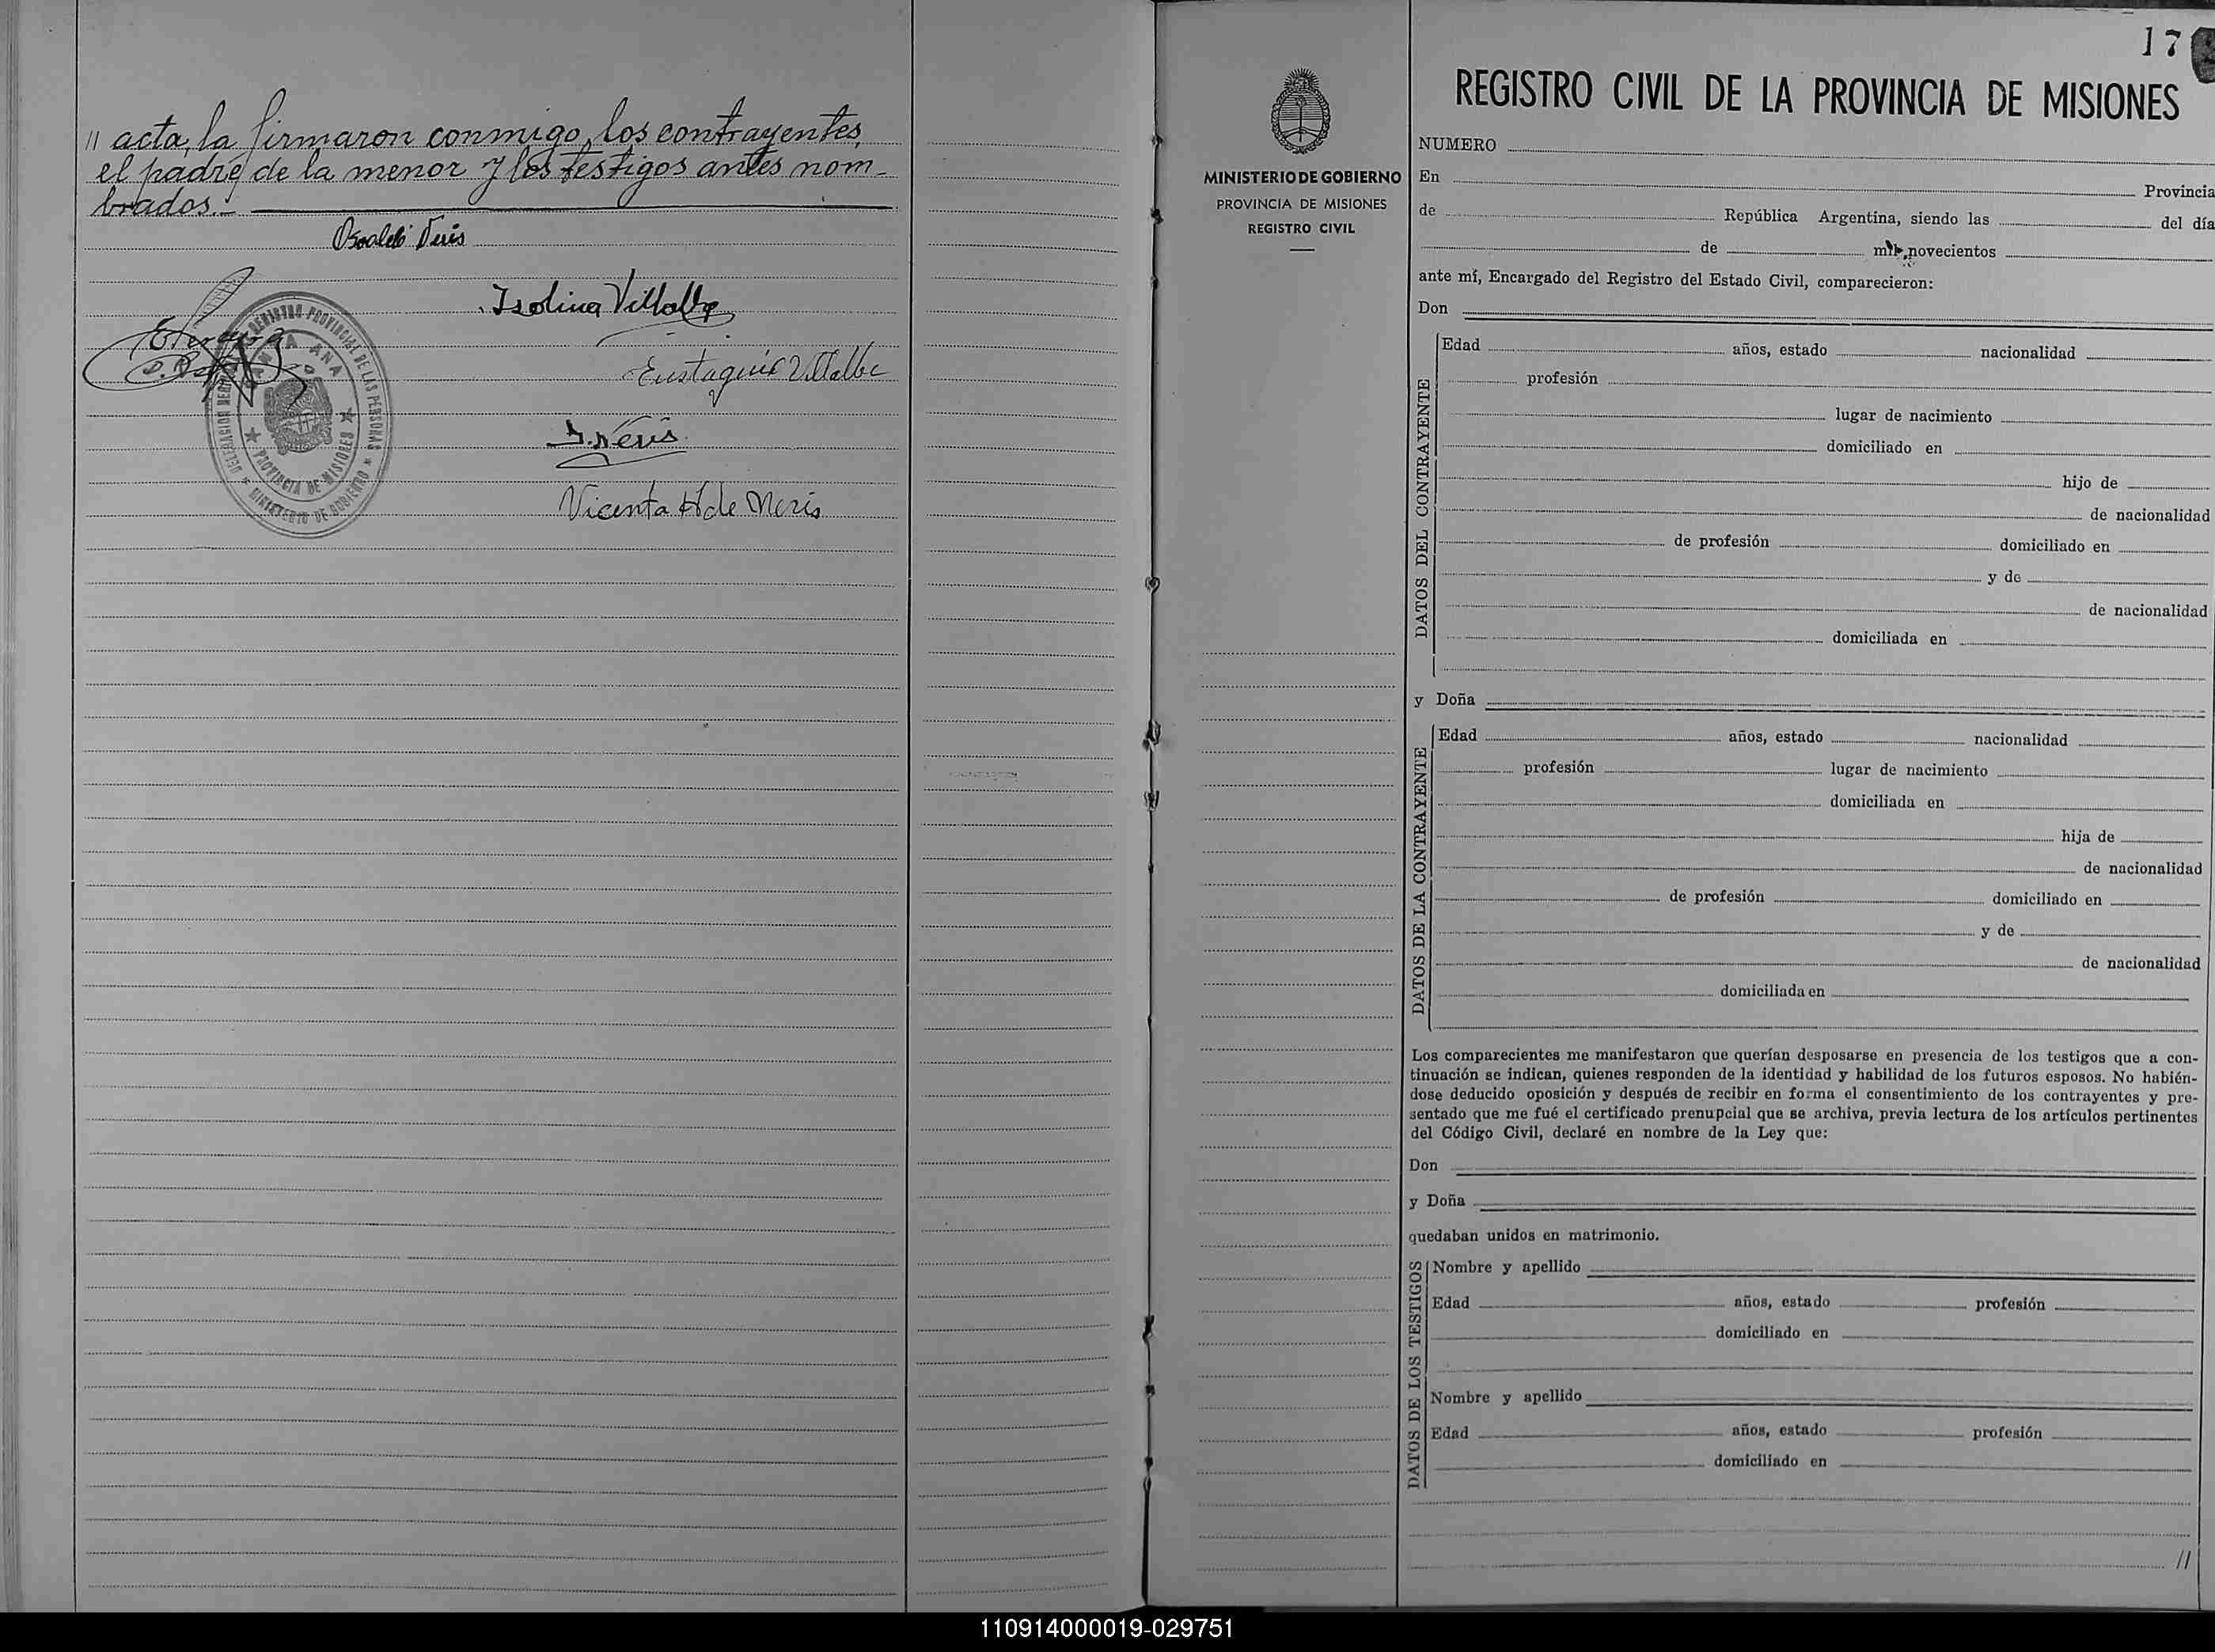 // acta, la firmaron conmigo, los contrayentes,
el padre de la menor y los testigos antes nom-
brados.-
Osvaldo Neris
Isolina Villalba
Eustaquio Villalba
Neris
Vicenta H de Neris
REGISTRO PROVINCIAL DE LAS PERSONAS
SANTA ANA
PROVINCIA DE MISIONES
MINISTERIO DE GOBIERNO
DELEGACION
17
MINISTERIO DE GOBIERNO
PROVINCIA DE MISIONES
REGISTRO CIVIL
REGISTRO CIVIL DE LA PROVINCIA DE MISIONES
NUMERO
En Provincia
de República Argentina, siendo las del día
de mil novecientos
ante mí, Encargado del Registro del Estado Civil, comparecieron:
Don
DATOS DEL CONTRAYENTE
Edad años, estado nacionalidad
profesión
lugar de nacimiento
domiciliado en
hijo de
de nacionalidad
de profesión domiciliado en
y de
de nacionalidad
domiciliada en
y Doña
DATOS DE LA CONTRAYENTE
Edad años, estado nacionalidad
profesión lugar de nacimiento
domiciliada en
hija de
de nacionalidad
de profesión domiciliado en
y de
de nacionalidad
domiciliada en
Los comparecientes me manifestaron que querían desposarse en presencia de los testigos que a con-
tinuación se indican, quienes responden de la identidad y habilidad de los futuros esposos. No habién-
dose deducido oposición y después de recibir en forma el consentimiento de los contrayentes y pre-
sentado que me fué el certificado prenupcial que se archiva, previa lectura de los artículos pertinentes
del Código Civil, declaré en nombre de la Ley que:
Don
y Doña
quedaban unidos en matrimonio.
DATOS DE LOS TESTIGOS
Nombre y apellido
Edad años, estado profesión
domiciliado en
Nombre y apellido
Edad años, estado profesión
domiciliado en
//
110914000019-029751